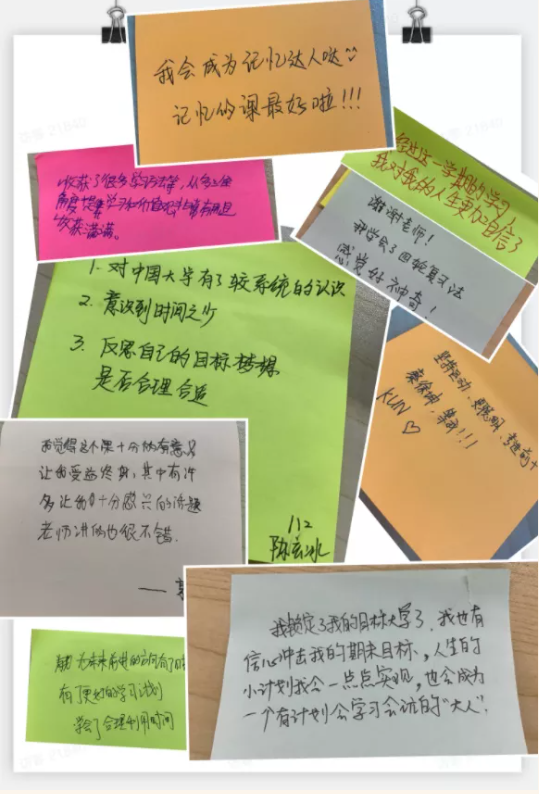 我会成为记忆达人哒
记忆的课最好啦!!!
收获了很多学习方法等,从
收获满满。
经过这一学期的学习,
我对我的人生更加自信了
谢谢老师!
我学会了四轮复习法
感觉好神奇!
1. 对中国大学有了较系统的认识
2. 意识到时间之少
3. 反思自己的目标梦想
是否合理合适
112
坚持运动,
蔡徐坤,等我!!!
KUN♡
我觉得这个课十分的有意思
让我受益终身,其中有许
多让我十分感兴的话题
老师讲的也很不错.
我锁定了我的目标大学了,我也有
信心冲击我的期末目标,人生的
小计划我会一点点实现,也会成为
一个有计划会学习会玩的“大人”.
有了更好的学习计划
学会了合理利用时间